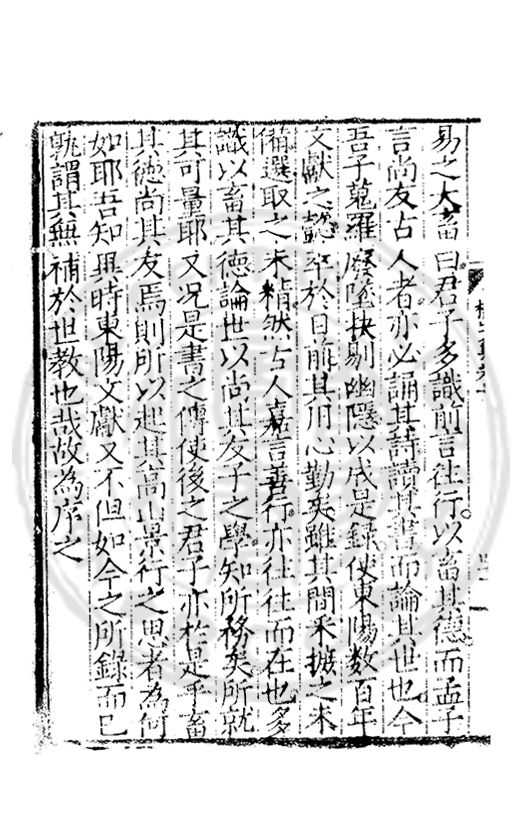 易之大畜曰君子多識前言往行以畜其德而孟子
言尚友古人者亦必誦其詩讀其書而論其世也今
吾子蒐羅廢墜抉剔幽隱以成是錄使東陽數百年
文獻之懿萃於目前其用心勤矣雖其間采摭之未
備選取之未精然古人嘉言善行亦往往而在也多
識以畜其德論世以尚其友子之學知所務矣所就
其可量耶又况是書之傳使後之君子亦於是乎畜
其德尚其友焉則所以起其高山景行之思者為何
如耶吾知異時東陽文獻又不但如今之所錄而已
孰謂其無補於世教也哉故為序之